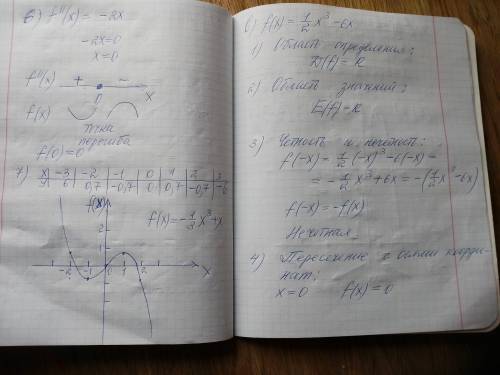 в) f''(x) = -2x
-2x=0
x=0
f''(x) + - 
0 x
f(x)
точка
перегиба
f(0)=0
7) x -3 -2 -1 0 1 2 3
y 6 0,7 -0,7 0 0,7 -0,7 -6
f(x)
f(x)=-1/3 x³+x
2
1
-2 -1 0 1 2 x
в) f(x)=1/2 x³-6x
1) Область определения:
D(f)=R
2) Область значений:
E(f)=R
3) Четность и нечетность:
f(-x)=1/2(-x)³-6(-x)=
=-1/2x³+6x=-(1/2x³-6x)
f(-x)=-f(x)
Нечетная
4) Пересечение с осями коорди-
нат:
x=0 f(x)=0